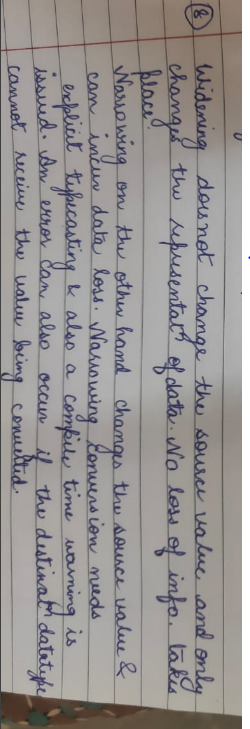 8 Widening does not change the source value and only
changes the representatn of data. No loss of info. takes
place.
Narrowing on the other hand changes the source value &
can incur data loss. Narrowing conversion needs
explicit typecasting & also a compile time warning is
issued. An error can also occur if the destinatn datatype
cannot receive the value being converted.